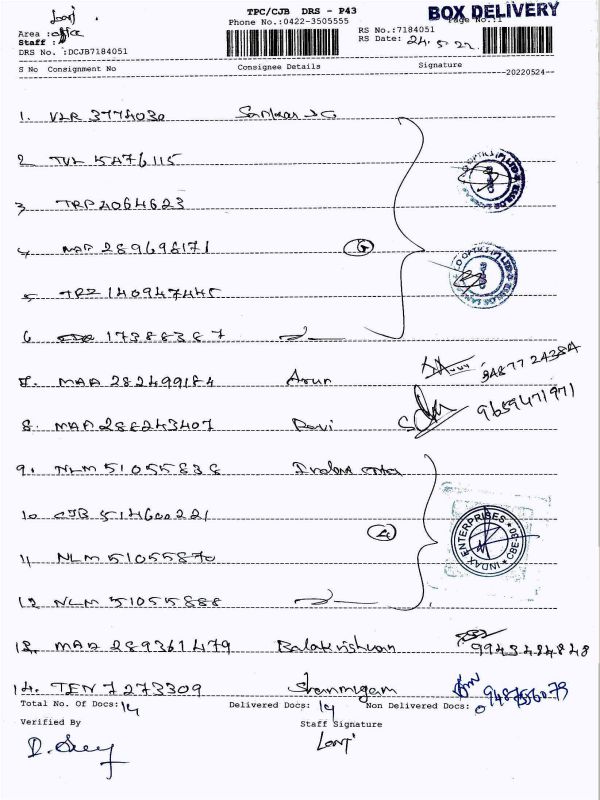 TPC/CJB DRS - P43
BOX DELIVERY
Phone No.:0422-3505555
Page No.:1
Area : office
Staff :
DRS No. :DCJB7184051
RS No.:7184051
RS Date: 24.5.22
S No Consignment No Consignee Details Signature
20220524
1. VLR 3774030
2. TVL 5476115
3. TRP 4064623
4. MAA 289698171 6
5. 140947445
6. 17388387
7. MAA 282499184 Arun 94877 24384
8. MAA 288243407 Ravi 9659471971
OPTICS (P) LTD
OPTICS (P) LTD
9. NLM 51055838
10. CJB 514600221 4
11. NLM 51055870
INDAX ENTERPRISES CBE-30
12. NLM 51055888
13. MAA 289361479 Balakrishnan 9943484848
14. TEN 7273309 Shanmugam
Total No. Of Docs: 14 Delivered Docs: 14 Non Delivered Docs: 0
Verified By Staff Signature